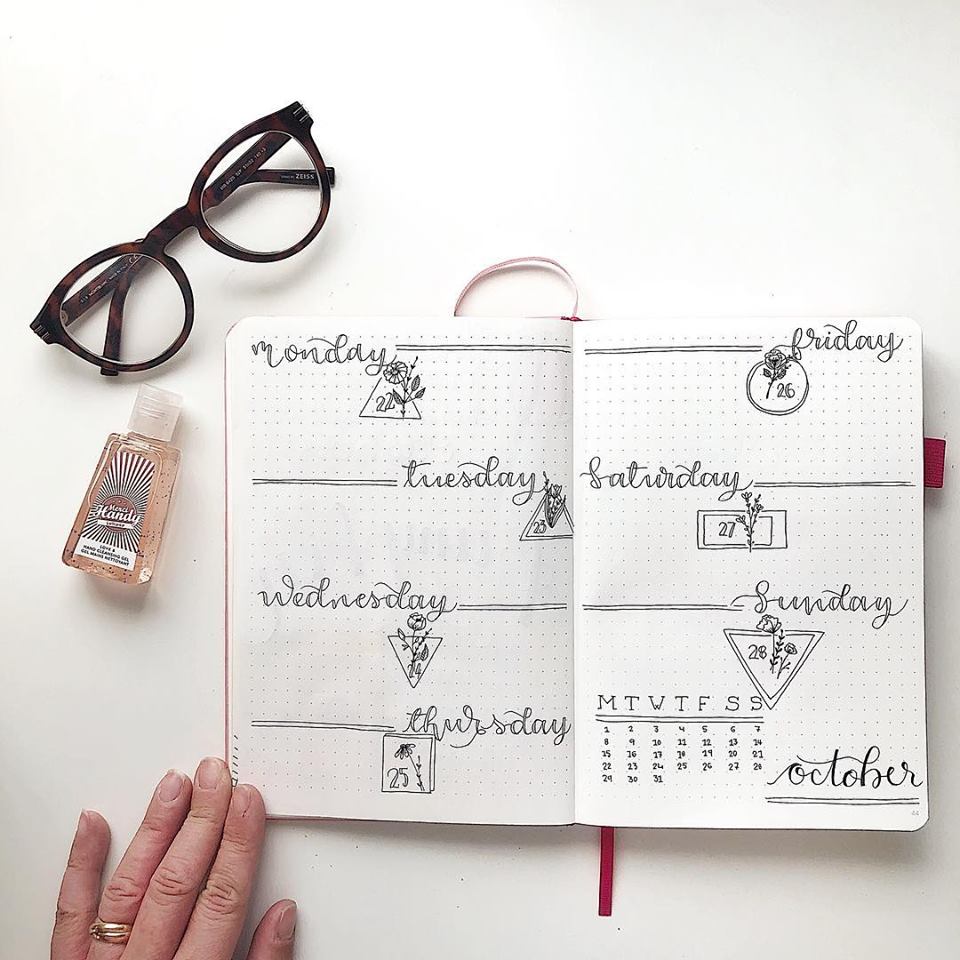 ZEISS
Merci
Handy
LOVE &
HAND CLEANSING GEL
GEL MAINS NETTOYANT
monday
22
tuesday
23
wednesday
24
thursday
25
friday
26
saturday
27
sunday
28
M T W T F S S
1 2 3 4 5 6 7
8 9 10 11 12 13 14
15 16 17 18 19 20 21
22 23 24 25 26 27 28
29 30 31
october
44